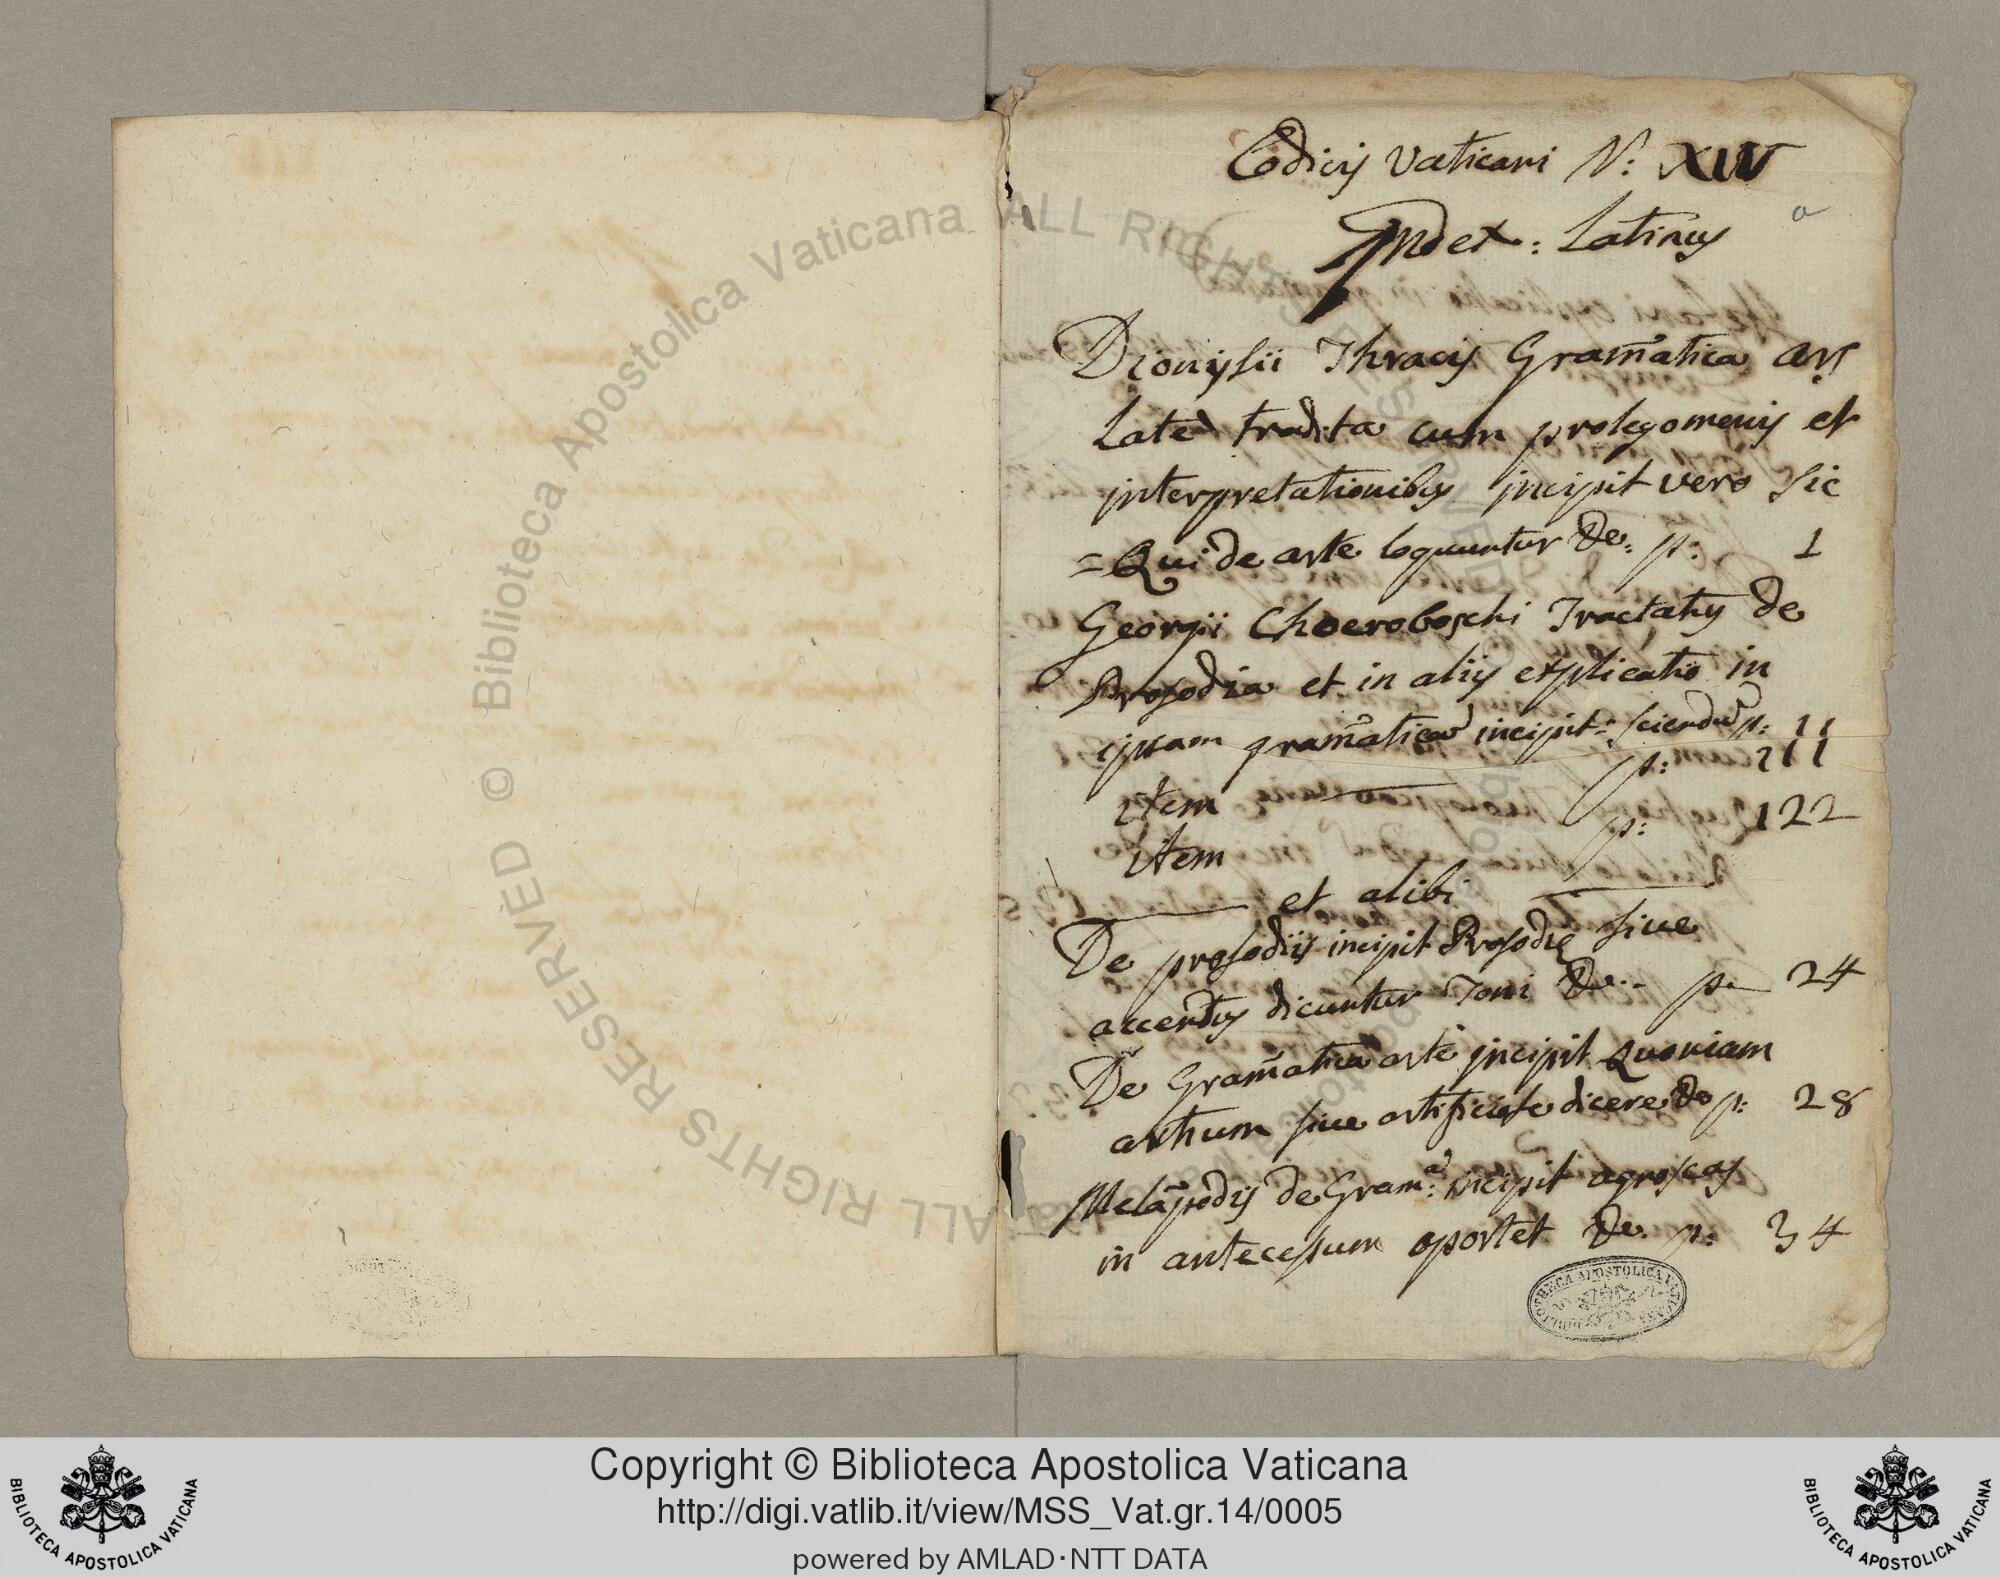 Codicis Vaticani N: XIV
a
Index: Latinus
Dionysii Thracis Gram̃atica ars
Late tradita cum prolegomenis et
interpretationibus incipit vero sic
=Qui de arte loquuntur &c. p: 1
Georgii Choeroboschi Tractatus de
Prosodia et in aliis explicatio in
ipsam gram̃atica incipit: sciendũ p: 11
item p: 111
item p: 122
et alibi
De prosodiis incipit Prosodię sive
accentus dicuntur Toni &c. p. 24
De Gram̃atica arte incipit Quoniam
artium sive artificiose dicere &c p: 28
Melãpodis de Gram:ª incipit agnoscas
in antecessum oportet &c. p: 34
BIBLIOTHECA APOSTOLICA VATICANA
© Biblioteca Apostolica Vaticana ALL RIGHTS RESERVED
Copyright © Biblioteca Apostolica Vaticana
http://digi.vatlib.it/view/MSS_Vat.gr.14/0005
powered by AMLAD·NTT DATA
BIBLIOTECA APOSTOLICA VATICANA
BIBLIOTECA APOSTOLICA VATICANA